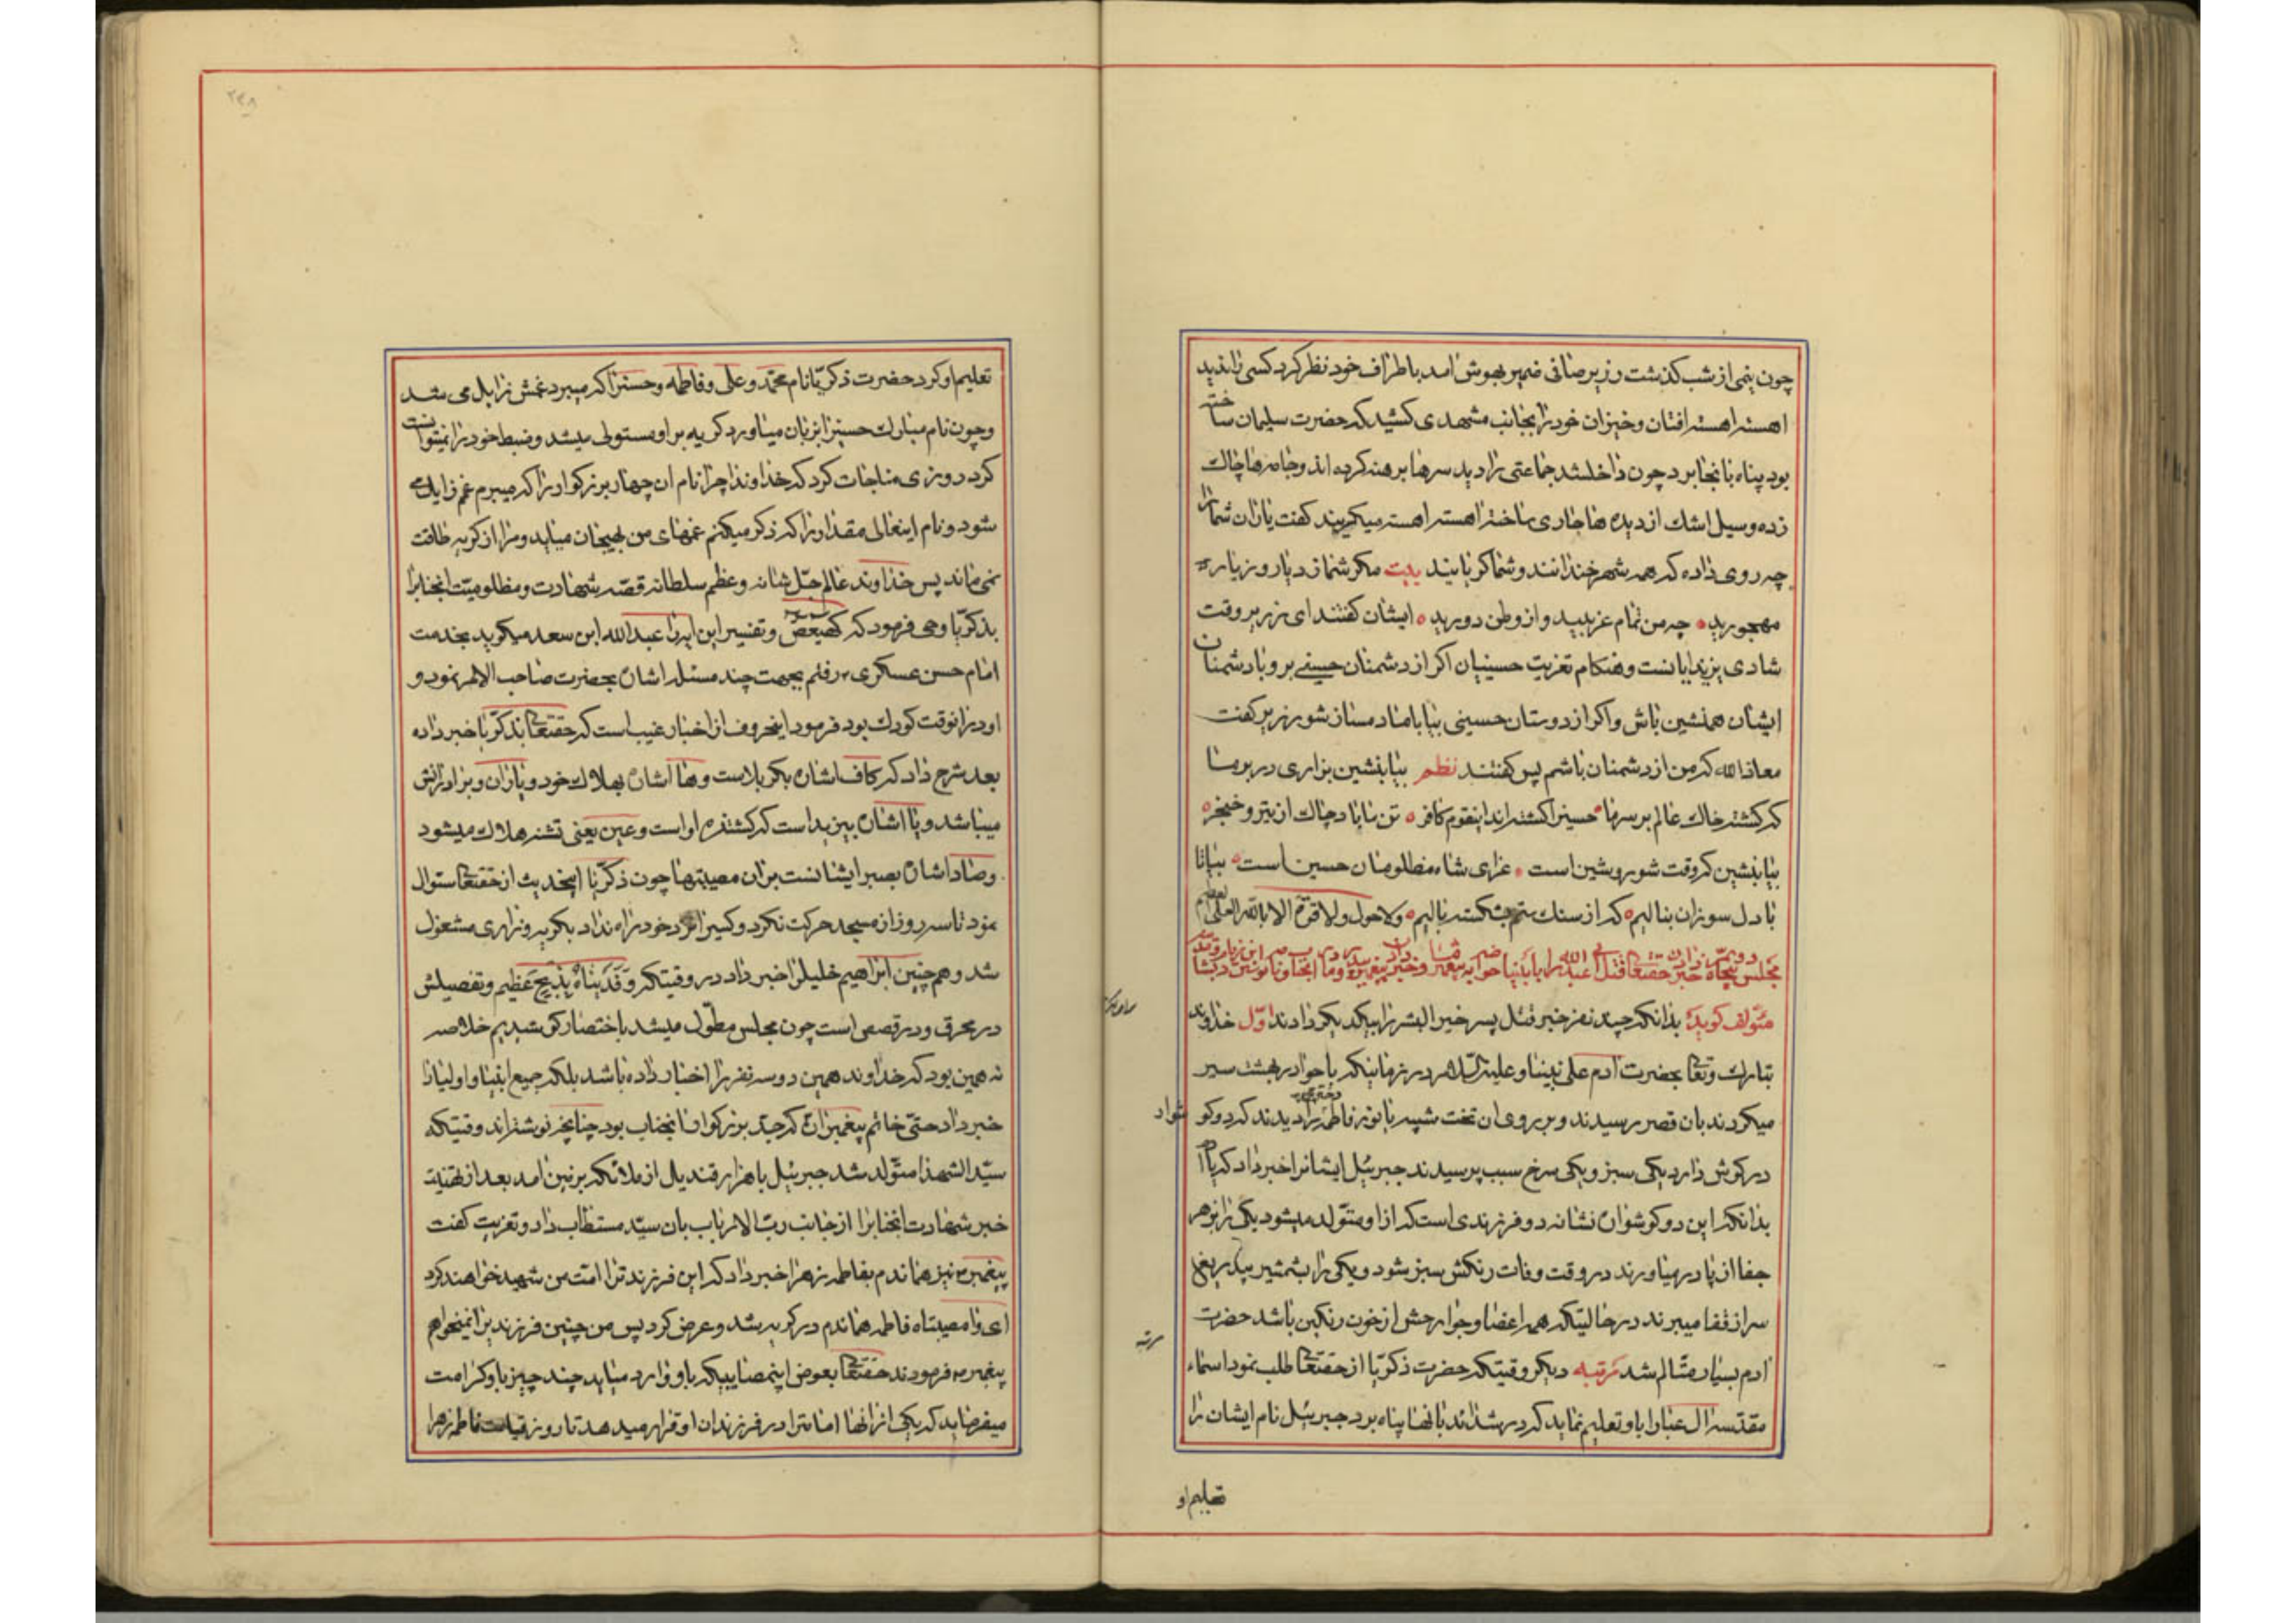 چون نیمی از شب گذشت زریر صافی ضمیر بهوش امد باطراف خود نظر کرد کسی را ندید
اهسته اهسته افتان و خیزان خود را بجانب مشهدی کشید که حضرت سلیمان ساخته
بود پناه بانجا برد چون داخل شد جماعتی را دید سرها برهنه کرده اند و جامه ها چاک
زده و سیل اشک از دیده ها جاری ساخته اهسته اهسته میگریند گفت یاران شما را
چه روی داده که همه شهر خندانند و شما گریانید بیت مگر شما ز دیار و ز یار
مهجورید چه من تمام غریبید و از وطن دورید ایشان گفتند ای زریر وقت
شادی یزیدیانست و هنگام تعزیت حسینیان اگر از دشمنان حسینی برو با دشمنان
ایشان همنشین باش و اگر از دوستان حسینی بیا با ما دمساز شو زریر گفت
معاذالله که من از دشمنان باشم پس گفتند نظم بیا بنشین بزاری در بر ما
که گشته خاک عالم بر سر ما حسین را کشته اند اینقوم کافر تن ما باد چاک از تیر و خنجر
بیا بنشین که وقت شور و شین است عزای شاه مظلومان حسین است بیا تا
با دل سوزان بنالیم که از سنک ستم بشکسته بالیم ولاحول ولا قوة الا بالله العلی العظیم
مجلس پنجاه دویم خبر دادن حقتعالی قتل ابی عبدالله را بانبیا
مؤلف گوید بدانکه چند نفر خبر قتل پسر خیر البشر را بیکدیگر دادند اول خداوند
تبارک وتعالی بحضرت ادم علی نبینا و علیه السلام در زمانیکه با حوا در بهشت سیر
میکردند بان قصر رسیدند و بر روی ان تخت شبیه بانور فاطمه دختر را دیدند که دو گو
شوار
در گوش دارد یکی سبز و یکی سرخ سبب پرسیدند جبرئیل ایشانرا خبر داد که یا ادم
بدانکه این دو گوشواره نشانه دو فرزندی است که از او متولد میشود یکی را زهر
جفا از پا در میاورند در وقت وفات رنگش سبز شود و یکی را بشمشیر بیدریغ
سر از قفا میبرند در حالتیکه همه اعضا و جوارحش از خون رنگین باشد حضرت
ادم بسیار متالم شد مرتبه دیگر وقتیکه حضرت ذکریا از حقتعالی طلب نمود اسماء
مرتبه
مقدسه ال عبا را باو تعلیم نماید که در شداید بانها پناه برد جبرئیل نام ایشان را
تعلیم او
تعلیم او کرد حضرت ذکریا نام محمد و علی و فاطمه و حسن را که میبرد غمش زایل می شد
و چون نام مبارک حسین را بزبان میاورد گریه بر او مستولی میشد و ضبط خود را نمیتوانست
کرد روزی مناجات کرد که خداوندا چرا نام ان چهار بزرگوار را که میبرم غم زایل می
شود و نام اینعالی مقدار را که ذکر میکنم غمهای من بهیجان میاید و مرا از گریه طاقت
نمی ماند پس خداوند عالم جل شانه و عظم سلطانه قصه شهادت و مظلومیت انجنابرا
بذکریا وحی فرمود که کهیعص و تفسیر این ایه را عبدالله ابن سعد میگوید بخدمت
امام حسن عسکری رفتم بجهت چند مسئله اشاره بحضرت صاحب الامر نمود و
او در انوقت کودک بود فرمود اینحروف از اخبار غیب است که حقتعالی بذکریا خبر داده
بعد شرح داد که کاف اشاره بکربلاست و ها اشاره بهلاک خود و یاران و برادرانش
میباشد و یا اشاره بیزید است که کشنده او است و عین یعنی تشنه هلاک میشود
و صاد اشاره بصبر ایشانست بران مصیبتها چون ذکریا اینحدیث از حقتعالی سئوال
نمود تا سه روز از مسجد حرکت نکرد و کسیرا نزد خود راه نداد بگریه و زاری مشغول
شد و هم چنین ابراهیم خلیل را خبر داد در وقتیکه وَفَدَیناهُ بِذِبحٍ عَظیم و تفصیلش
در محرق و در قصص است چون مجلس مطول میشد باختصار کوشیدیم خلاصه
نه همین بود که خداوند همین دو سه نفر را اخبار داده باشد بلکه جمیع انبیا و اولیا را
خبر داد حتی خاتم پیغمبران که جد بزرگوار انجناب بود چنانچه نوشته اند وقتیکه
سید الشهدا متولد شد جبرئیل با هزار قندیل از ملائکه بزمین امد بعد از تهنیت
خبر شهادت انجنابرا از جانب رب الارباب بان سید مستطاب داد و تعزیت گفت
پیغمبر نیز هماندم بفاطمه زهرا خبر داد که این فرزند ترا امت من شهید خواهند کرد
ای وا مصیبتاه فاطمه هماندم در گریه شد و عرض کرد پس من چنین فرزندیرا نمیخواهم
پیغمبر فرمودند حقتعالی بعوض اینمصایبیکه باو وارد میاید چند چیز باو کرامت
میفرماید که یکی از انها امامترا در فرزندان او قرار میدهد تا روز قیامت فاطمه زهرا